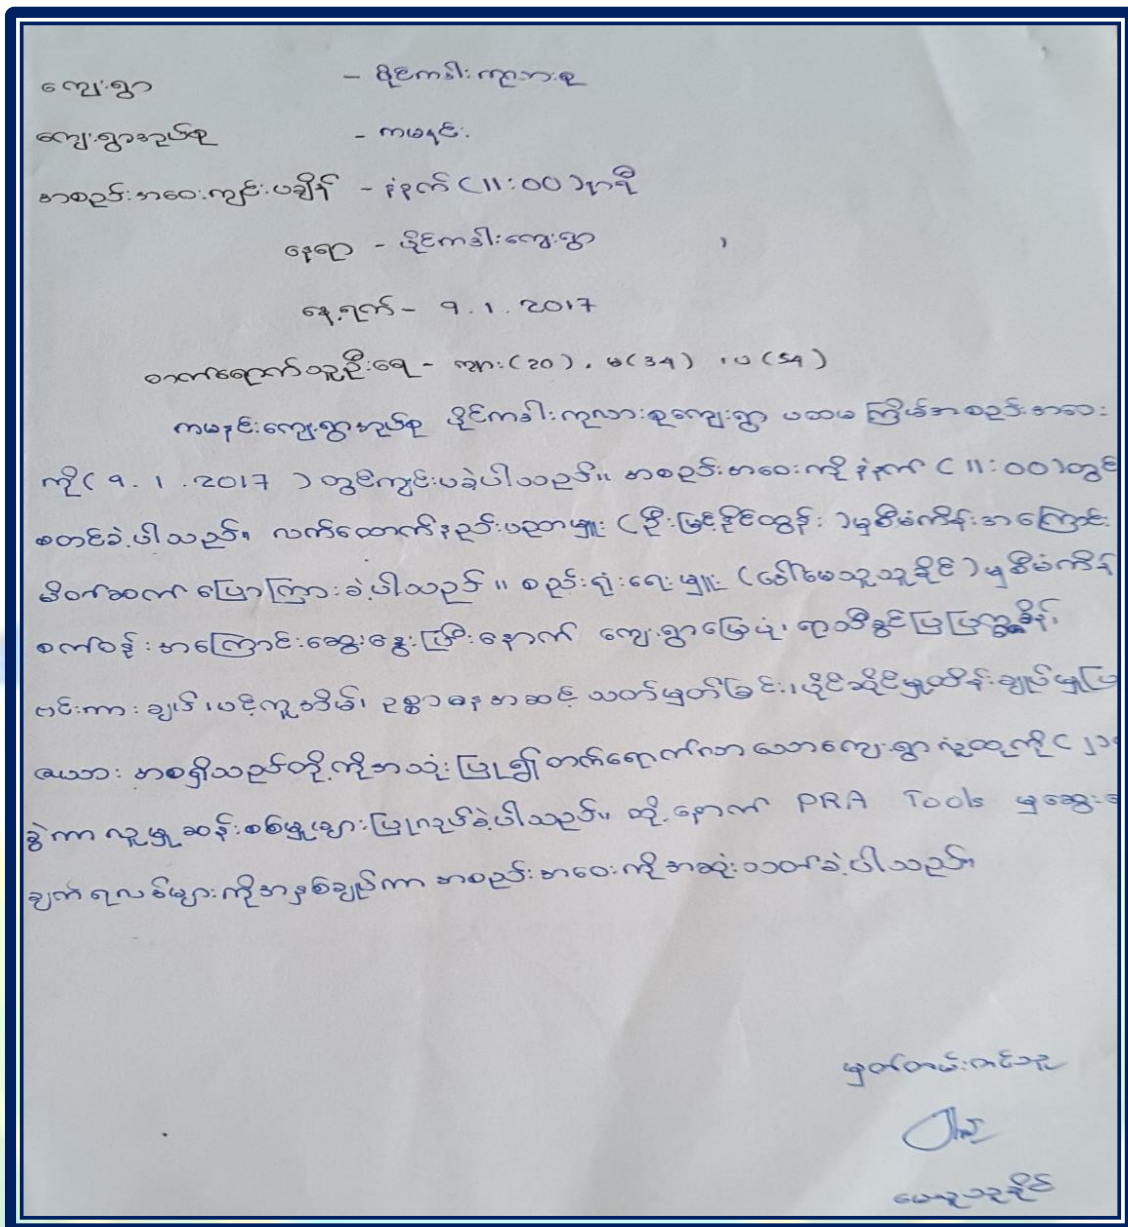 ကျေးရွာ - ခိုင်ကဒါးကုလားစု
ကျေးရွာအုပ်စု - ကမနင်း
အစည်းအဝေးကျင်းပချိန် - နံနက် (11:00) နာရီ
နေရာ - ခိုင်ကဒါးကျေးရွာ
နေ့ရက် - 9.1.2017
တက်ရောက်သူဦးရေ - ကျား (20) ၊ မ (34) ၊ ပ (54)
ကမနင်းကျေးရွာအုပ်စု ခိုင်ကဒါးကုလားစုကျေးရွာ ပထမကြိမ်အစည်းအဝေး
ကို (9.1.2017) တွင်ကျင်းပခဲ့ပါသည်။ အစည်းအဝေးကို နံနက် (11:00) တွင်
စတင်ခဲ့ပါသည်။ လက်ထောက်နည်းပညာမှူး (ဦးမြင့်နိုင်ထွန်း) မှစီမံကိန်းအကြောင်း
မိတ်ဆက် ပြောကြားခဲ့ပါသည်။ စည်းရုံးရေးမှူး (ဒေါ်မေသူသူနိုင်) မှစီမံကိန်
စက်ဝန်းအကြောင်းဆွေးနွေးပြီးနောက် ကျေးရွာမြေပုံ၊ ရာသီခွင်ပြပြက္ခဒိန်၊
ဗင်းကားချပ်၊ ပင့်ကူအိမ်၊ ဥစ္စာဓနအဆင့်သတ်မှတ်ခြင်း၊ ပိုင်ဆိုင်မှုထိန်းချုပ်မှုပြ
ဇယား အစရှိသည်တို့ကိုအသုံးပြု၍ တက်ရောက်လာသောကျေးရွာလူထုကို (
ခွဲကာ လူမှုဆန်းစစ်မှုများပြုလုပ်ခဲ့ပါသည်။ ထို့နောက် PRA Tools မှဆွေး
ချက်ရလစ်များကိုအနှစ်ချုပ်ကာ အစည်းအဝေးကိုအဆုံးသတ်ခဲ့ပါသည်။
မှတ်တမ်းတင်သူ
မေသူသူနိုင်